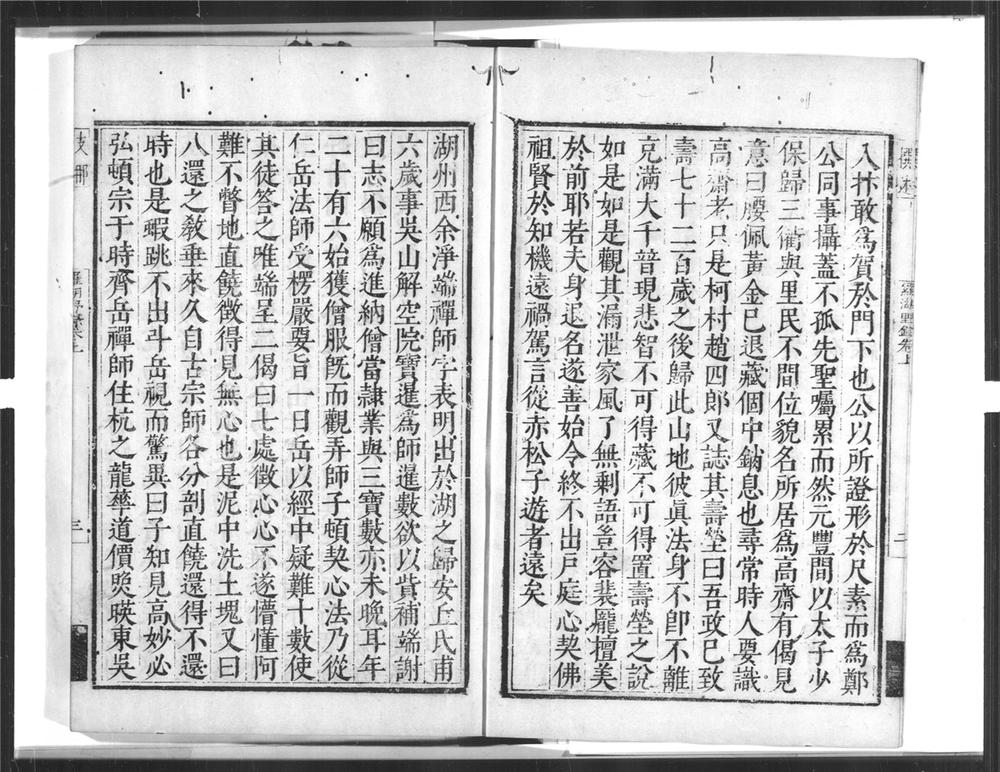 入抃敢爲賀於門下也公以所證形於尺素而爲鄭
公同事攝蓋不孤先聖囑累而然元豐間以太子少
保歸三衢與里民不間位貌名所居爲高齋有偈見
意曰腰佩黃金已退藏個中消息也尋常時人要識
高齋老只是柯村趙四郎又誌其壽塋曰吾政已致
壽七十二百歲之後歸此山地彼真法身不即不離
充滿大千普現悲智不可得藏不可得置壽塋之說
如是如是觀其漏泄家風了無剩語豈容裴龐擅美
於前耶若夫身退名遂善始令終不出戶庭心契佛
祖賢於知機遠禍駕言從赤松子遊者遠矣
湖州西余淨端禪師字表明出於湖之歸安丘氏甫
六歲事吳山解空院寶暹爲師暹數欲以貲補端謝
曰志不願爲進納僧當隷業與三寶數亦未晚耳年
二十有六始獲僧服旣而觀弄師子頓契心法乃從
仁岳法師受楞嚴要旨一日岳以經中疑難十數使
其徒答之唯端呈二偈曰七處徵心心不遂懵懂阿
難不瞥地直饒徵得見無心也是泥中洗土塊又曰
八還之敎垂來久自古宗師各分剖直饒還得不還
時也是蝦跳不出斗岳視而驚異曰子知見高妙必
弘頓宗于時齊岳禪師住杭之龍華道價煥暎東吳
羅湖野錄卷上
二
三